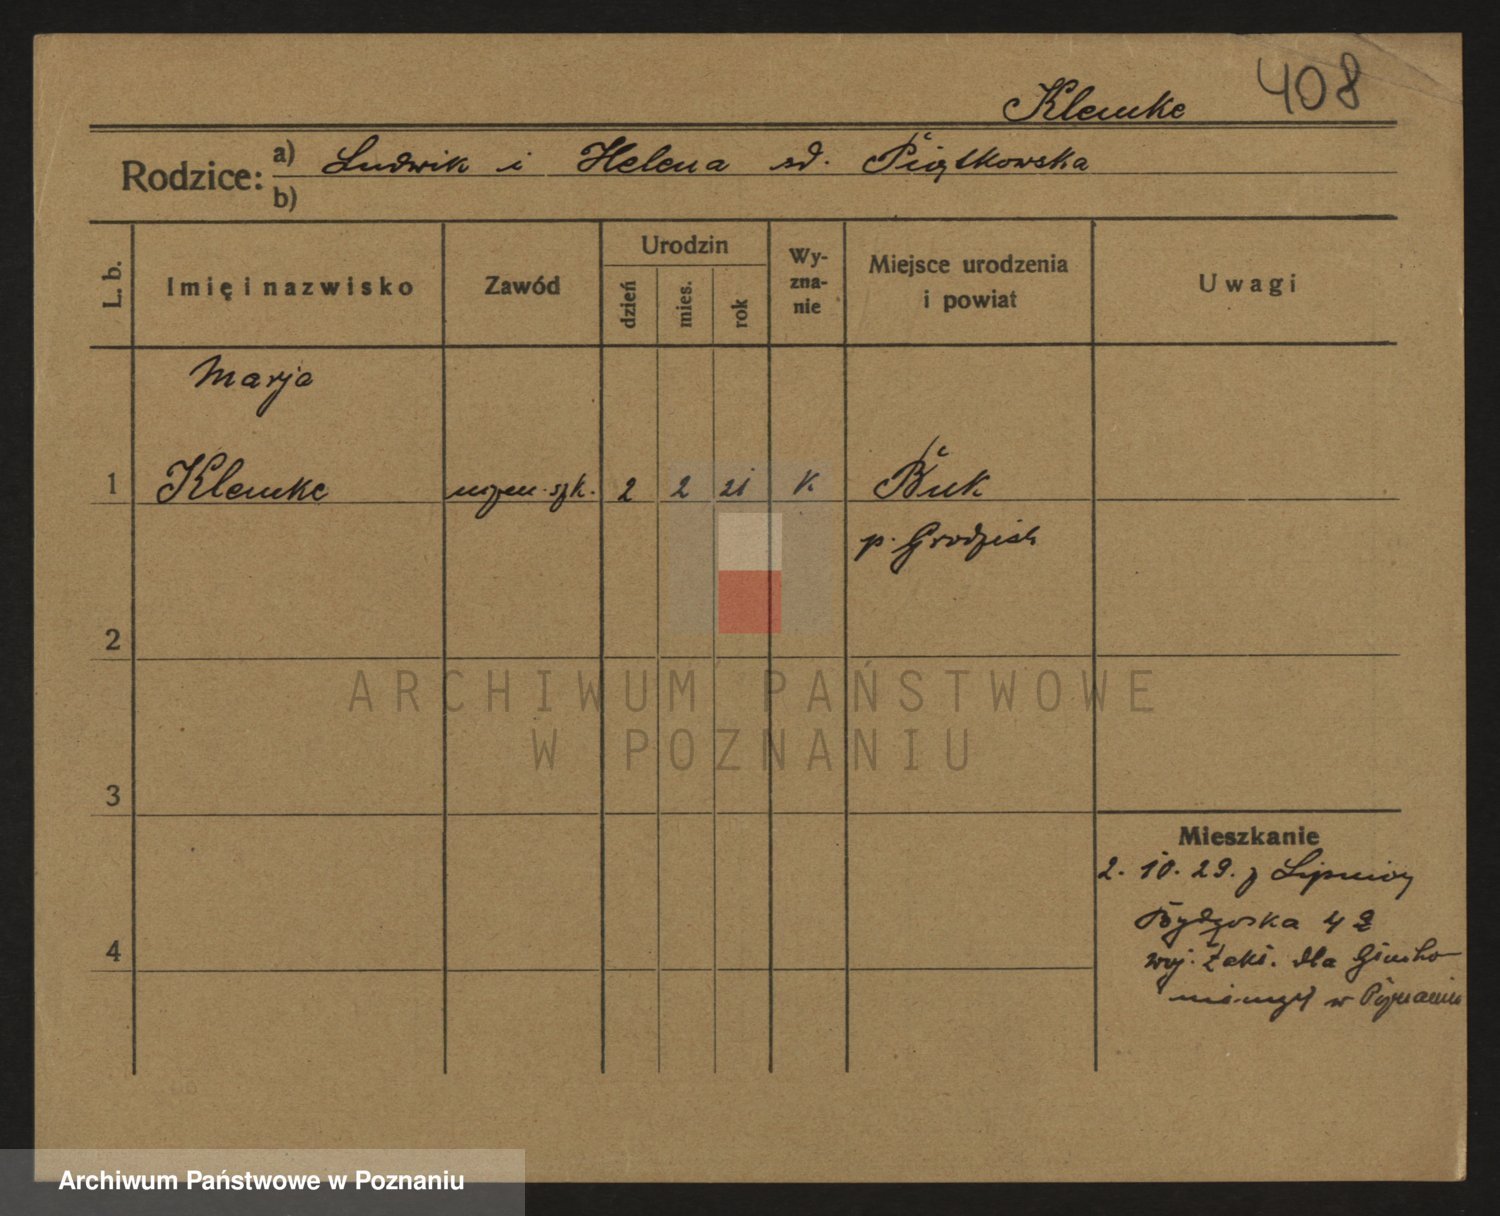 408
Klemke
Rodzice: a) Ludwik i Helena sd. Piątkowska
b)
L. b.
Imię i nazwisko
Zawód
Urodzin
dzień
mies.
rok
Wy-
zna-
nie
Miejsce urodzenia
i powiat
Uwagi
Marja
1 Klemke uczen. szk. 2 2 21 K Buk
p. Grodzisk
2
3
4
Mieszkanie
2. 10. 29. z Lipnicy
Bydgoska 4
woj. Zakł. dla Głucho
niemych w Poznaniu
ARCHIWUM PAŃSTWOWE
W POZNANIU
Archiwum Państwowe w Poznaniu